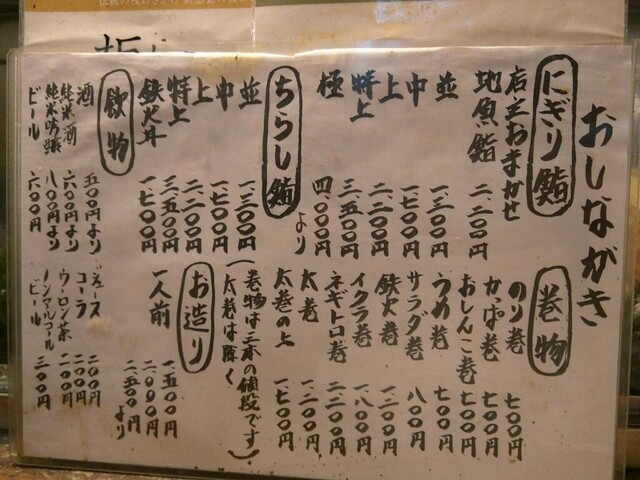 おしながき
にぎり鮨
店主おまかせ
地魚鮨 二、二〇〇円
並 一、三〇〇円
中 一、七〇〇円
上 二、二〇〇円
特上 三、五〇〇円
極 四、〇〇〇円より
ちらし鮨
並 一、三〇〇円
中 一、七〇〇円
上 二、二〇〇円
特上 三、五〇〇円
鉄火丼 一、七〇〇円
飲物
酒 五〇〇円より
純米酒 六〇〇円より
純米吟醸 八〇〇円より
ビール 六〇〇円
巻物
のり巻 七〇〇円
かっぱ巻 七〇〇円
おしんこ巻 七〇〇円
うめ巻 七〇〇円
サラダ巻 八〇〇円
鉄火巻 一、三〇〇円
イクラ巻 一、八〇〇円
ネギトロ巻 二、二〇〇円
太巻 一、三〇〇円
太巻の上 一、七〇〇円
(巻物は三本の値段です)
(太巻は除く)
お造り
一人前 一、五〇〇円
二、〇〇〇円
二、五〇〇円より
ジュース 二〇〇円
コーラ 二〇〇円
ウーロン茶 二〇〇円
ノンアルコールビール 三〇〇円